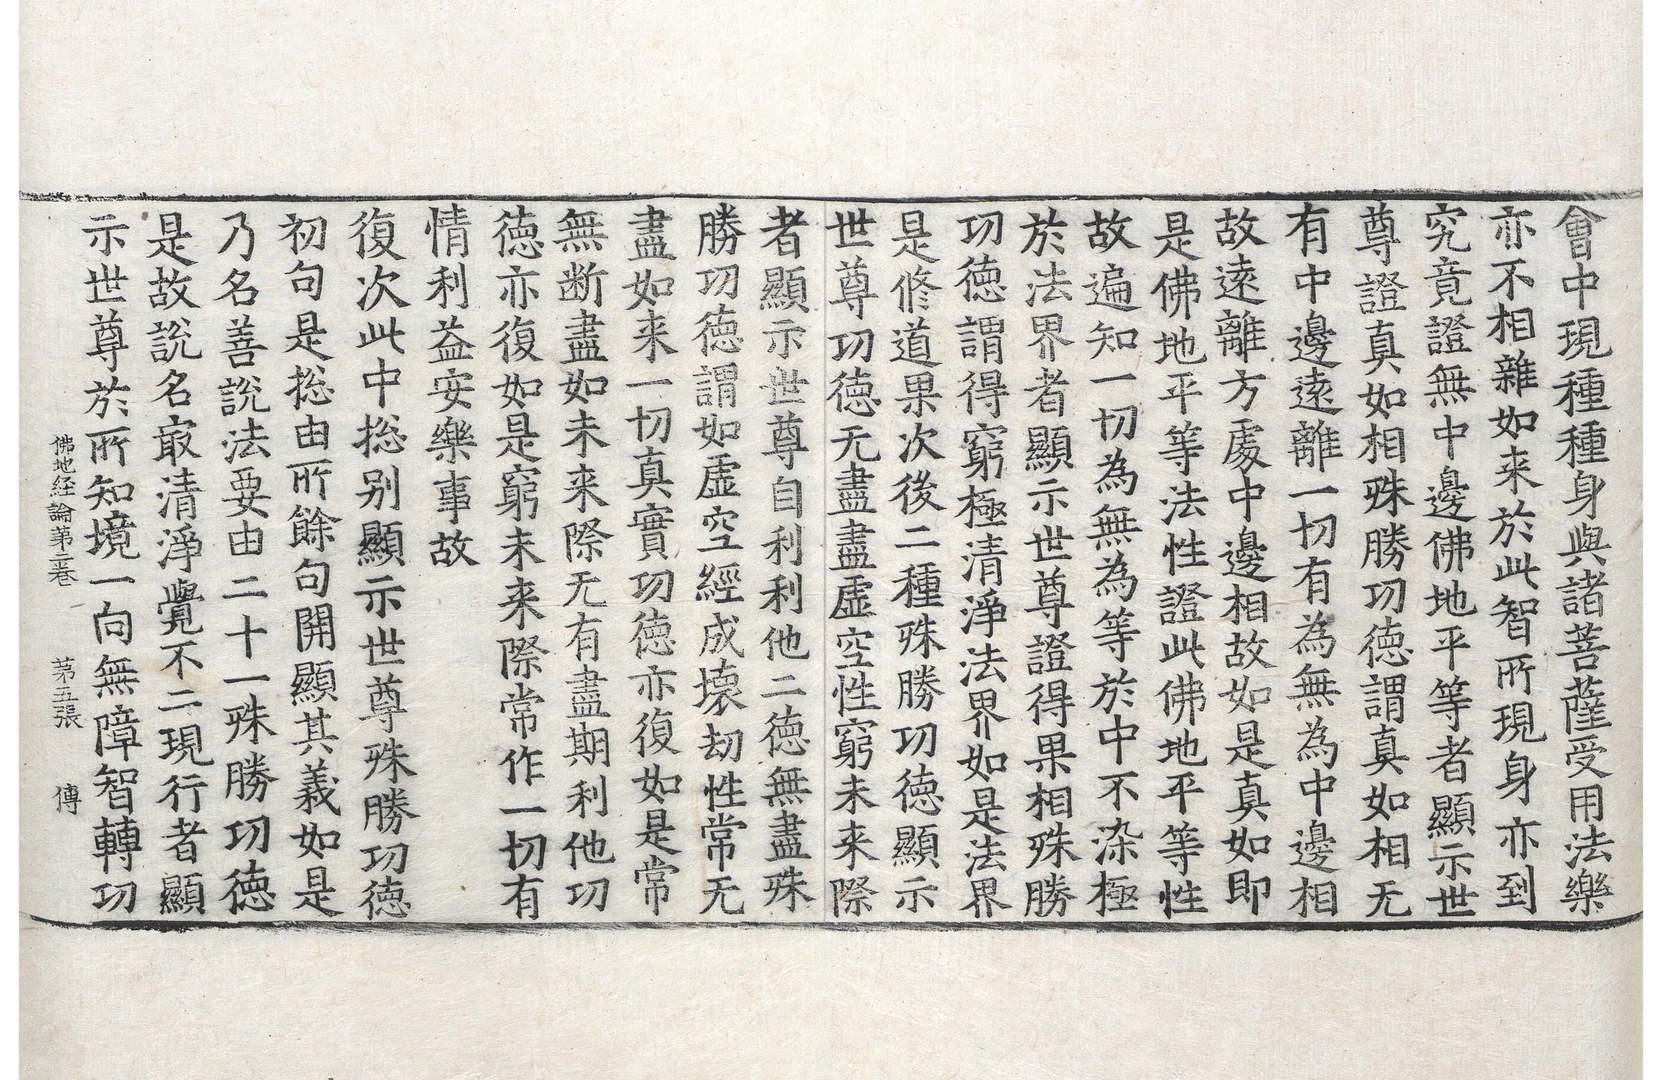 會中現種種身與諸菩薩受用法樂
亦不相雜如来於此智所現身亦到
究竟證無中邊佛地平等者顯示世
尊證真如相殊勝功德謂真如相无
有中邊遠離一切有為無為中邊相
故遠離方處中邊相故如是真如即
是佛地平等法性證此佛地平等性
故遍知一切為無為等於中不染極
於法界者顯示世尊證得果相殊勝
功德謂得窮極清淨法界如是法界
是修道果次後二種殊勝功德顯示
世尊功德无盡盡虛空性窮未来際
者顯示世尊自利利他二德無盡殊
勝功德謂如虛空經成壞劫性常无
盡如来一切真實功德亦復如是常
無断盡如未来際无有盡期利他功
德亦復如是窮未来際常作一切有
情利益安樂事故
復次此中捴别顯示世尊殊勝功德
初句是捴由所餘句開顯其義如是
乃名善說法要由二十一殊勝功德
是故說名㝡清淨覺不二現行者顯
示世尊於所知境一向無障智轉功
佛地経論苐二卷 苐五張 傳